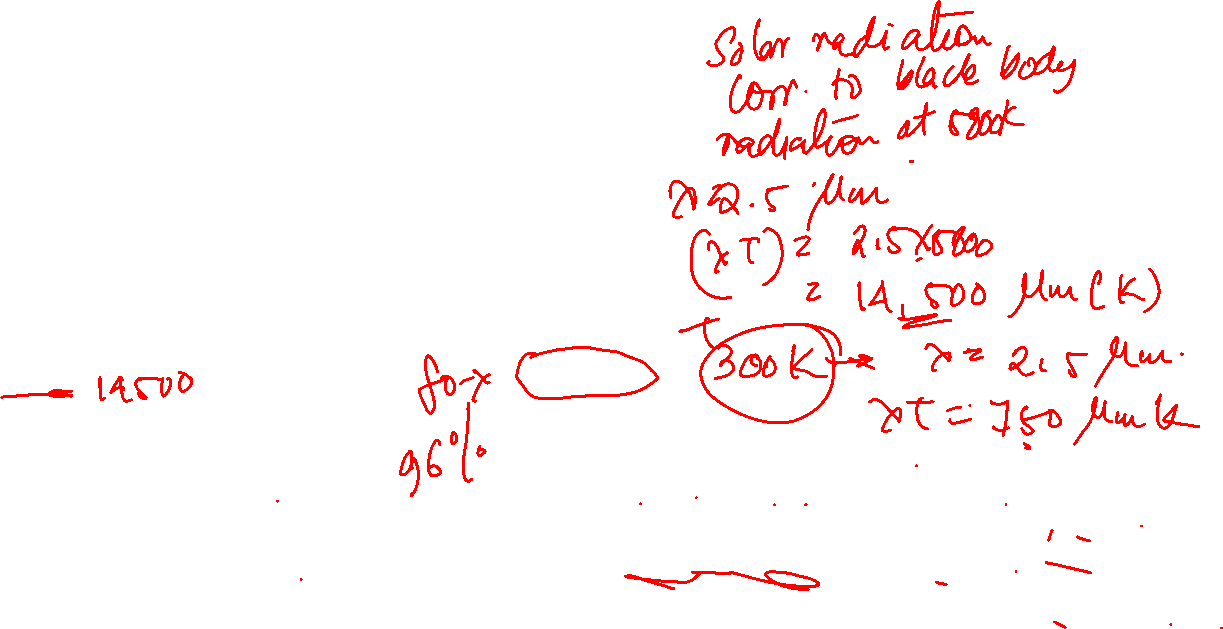 Solar radiation
Corr. to black body
radiation at 5800K
λ=2.5 μm
(λT) = 2.5×5800
= 14,500 μm(K)
300K → λ= 2.5 μm.
λT = 750 μmK
14500
f0-λ
96%